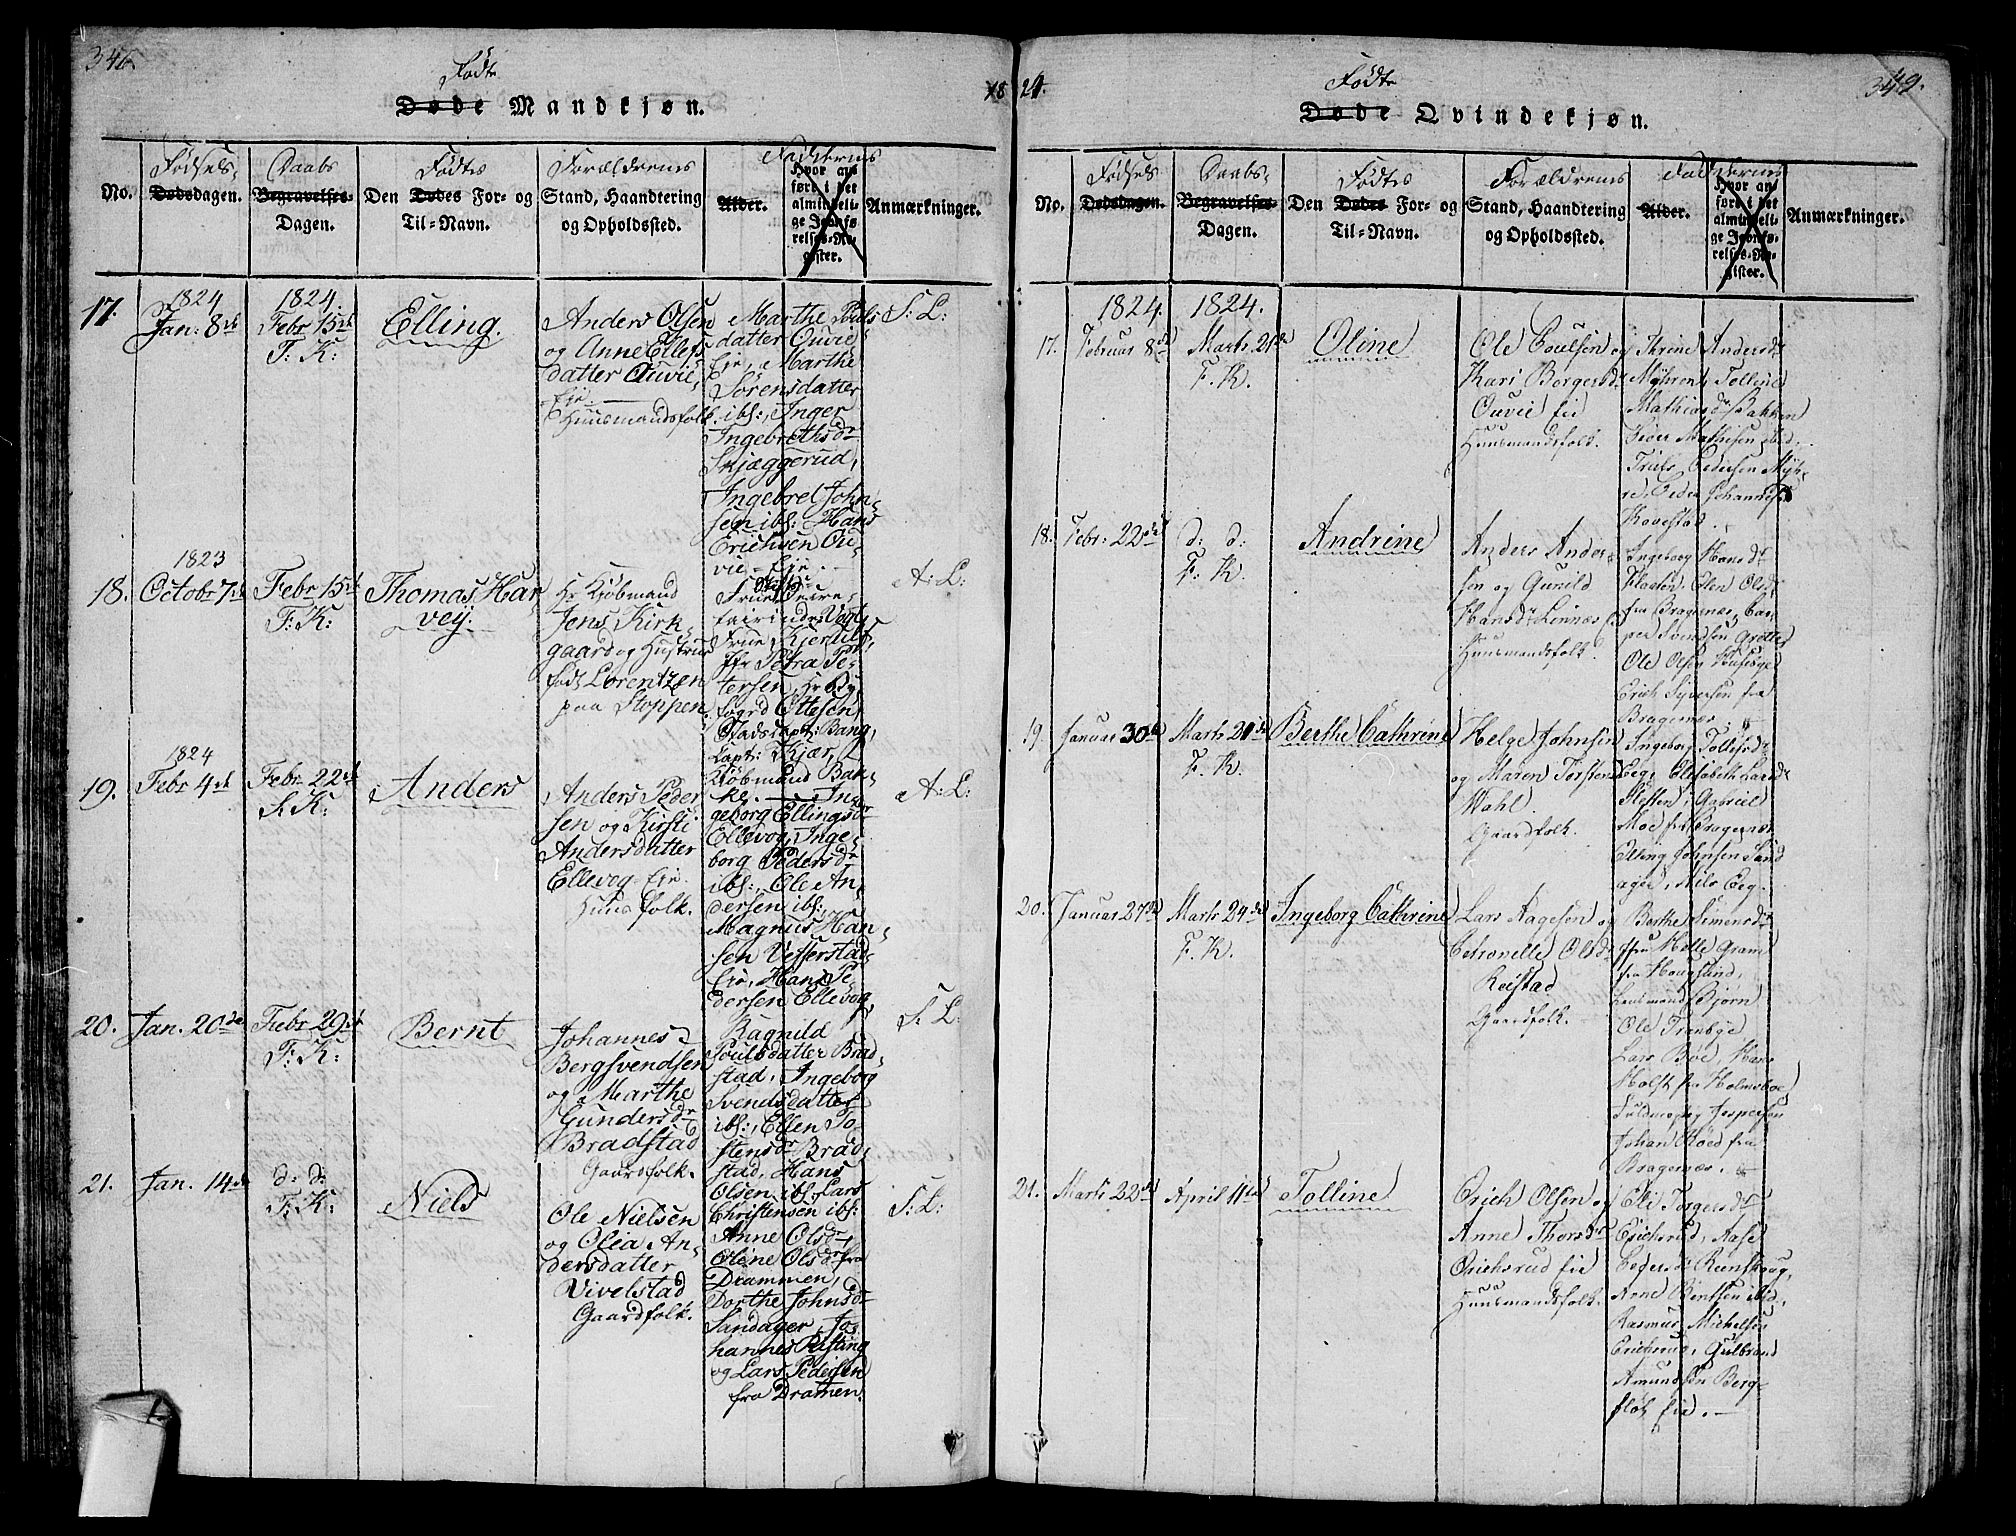 346.
Fødte
Døde Mandkjøn.
18
Fødsels-
Dødsdagen.
Daabs
Begravelses-
Dagen.
Fødtes
Forældrenes
Fadderens
No.
Den Dødes For- og
Til-Navn.
Stand, Haandtering
og Opholdssted.
Alder.
Hvor an-
ført i det
almindeli-
ge Jevnfø-
relses-Re-
gister.
Anmærkninger.
17.
1824
Jan: 8de
1824.
Febr 15de
F: K:
Elling.
Anders Olsen
og Anne Ellefs
datter Ouvie
Eje.
Huusmandsfolk.
Marthe Pouls
datter Ouvie
Eje, Marthe
Sørensdatter
ibs:, Inger
Ingebrethsdr
Skjæggerud,
Ingebret John-
sen ibs: Hans
Erichsen Ou-
vie Eje.
S: L:
18.
1823
Octobr 7de
Febr 15de
F: K:
Thomas Har
vey.
Hr Kjøbmand
Jens Kirk-
gaard og Hustrue
født Lorentzen
paa Stoppen
Frue
Vogt,
Frue Kjerulf,
Jfr Petra Pe-
tersen, Hr By-
fogd Ottesen
Stadscapt: Bang,
Capt: Kjær,
Kjøbmand Ban-
A: L:
19.
1824
Febr 4de
Febr 22de
S. K:
Anders
Anders Peder
sen og Kirsti
Andersdatter
Ellevog Eje.
Huusfolk.
Inge-
geborg Ellingsdr
Ellevog, Inge-
borg Pedersdr
ibs:, Ole An-
dersen ibs:,
Magnus Han-
sen Vefferstad
Eje, Hans Pe-
dersen Ellevog,
A: L:
20.
Jan. 20de
Febr 29de
F: K:
Bernt
Johannes
Bergsvendsen
og Marthe
Gundersdr
Bradstad
Gaardfolk.
Ragnild
Poulsdatter Brad-
stad, Ingeborg
Svendsdatter
ibs:, Ellen To-
stensdr Brad-
stad, Hans
Olsen ibs, Lars
Christensen ibs:
S. L:
21.
Jan. 14de
d: d:
F: K:
Niels
Ole Nielsen
og Olea An-
dersdatter
Vivelstad
Gaardfolk.
Anne Olsdr,
Oline Olsdr fra
Drammen,
Dorthe Johnsdr
Sandager, Jo-
hannes Risting
og Lars Pedersen
fra Dramen.
S: L:
24.
349.
Fødte
Døde Qvindekjøn.
Fødsels
Dødsdagen.
Daabs-
Begravelses-
Dagen.
Fødtes
Forældrenes
Fadderens
No.
Den Dødes For- og
Til-Navn.
Stand, Haandtering
og Opholdssted.
Alder.
Hvor an-
ført i det
almindeli-
ge Jevnfø-
relses-Re-
gister.
Anmærkninger.
17.
1824.
Februar 8de
1824.
Marts 21de
F. K.
Oline
Ole Poulsen og
Kari Borgersdr
Ouvie Eie
Huusmandsfolk.
Thrine Andersdr
Myhren, Tolline
Mathiasdr Bakken
Peder Mathisen ibid.
Truls Pedersen Myh-
re, Peder Johannesen
Kovestad.
18.
Febr: 22de
d: d:
F: K.
Andrine
Anders Ander-
sen og Gunild
Hansdr Linnes E
Huusmandsfolk.
Ingeborg Hansdr
Flaaten, Olea Olsdr
fra Bragernæs, Cas-
per Svendsen Grøtte
Ole Olsen Huseb͏ye
Erich Syversen fra
Bragernæs.
19.
Januar 30de
Marts 21de
F. K.
Berthe Cathrine
Helge Johnsen
og Maren Torstensdr
Wahl.
Gaardfolk.
Ingeborg Tollefsdr
Egge, Elisabeth Larsdr
Flaten, Gabriel
Moe fra Bragernæs
Elling Johnsen Sand
ager, Nils Egge.
20.
Januar 27de
Marts 24de
F. K.
Ingeborg Cathrine
Lars Aagesen og
Petronelle Olsdr
Reistad
Gaardfolk.
Berthe Simensdr
Helle Gram
fra Hougsund,
Lensmand Bjørn
Ole Tranbye
Lars Bøe, Hans
Holst fra Holmsboe
Fuldmegtig Jespersen
Johan Roed fra
Bragernæs.
21.
Marts 22de
April 11te
Tolline
Erich Olsen og
Anne Thorsdr
Erichsrud Eie
Huusmandsfolk.
Eli Torgersdr
Erichsrud, Aase
Pedersdr Renskoug,
Arne Berntsen ibid,
Rasmus Michelsen
Erichsrud, Gulbrand
Amundsen Berg-
fløt Eie.